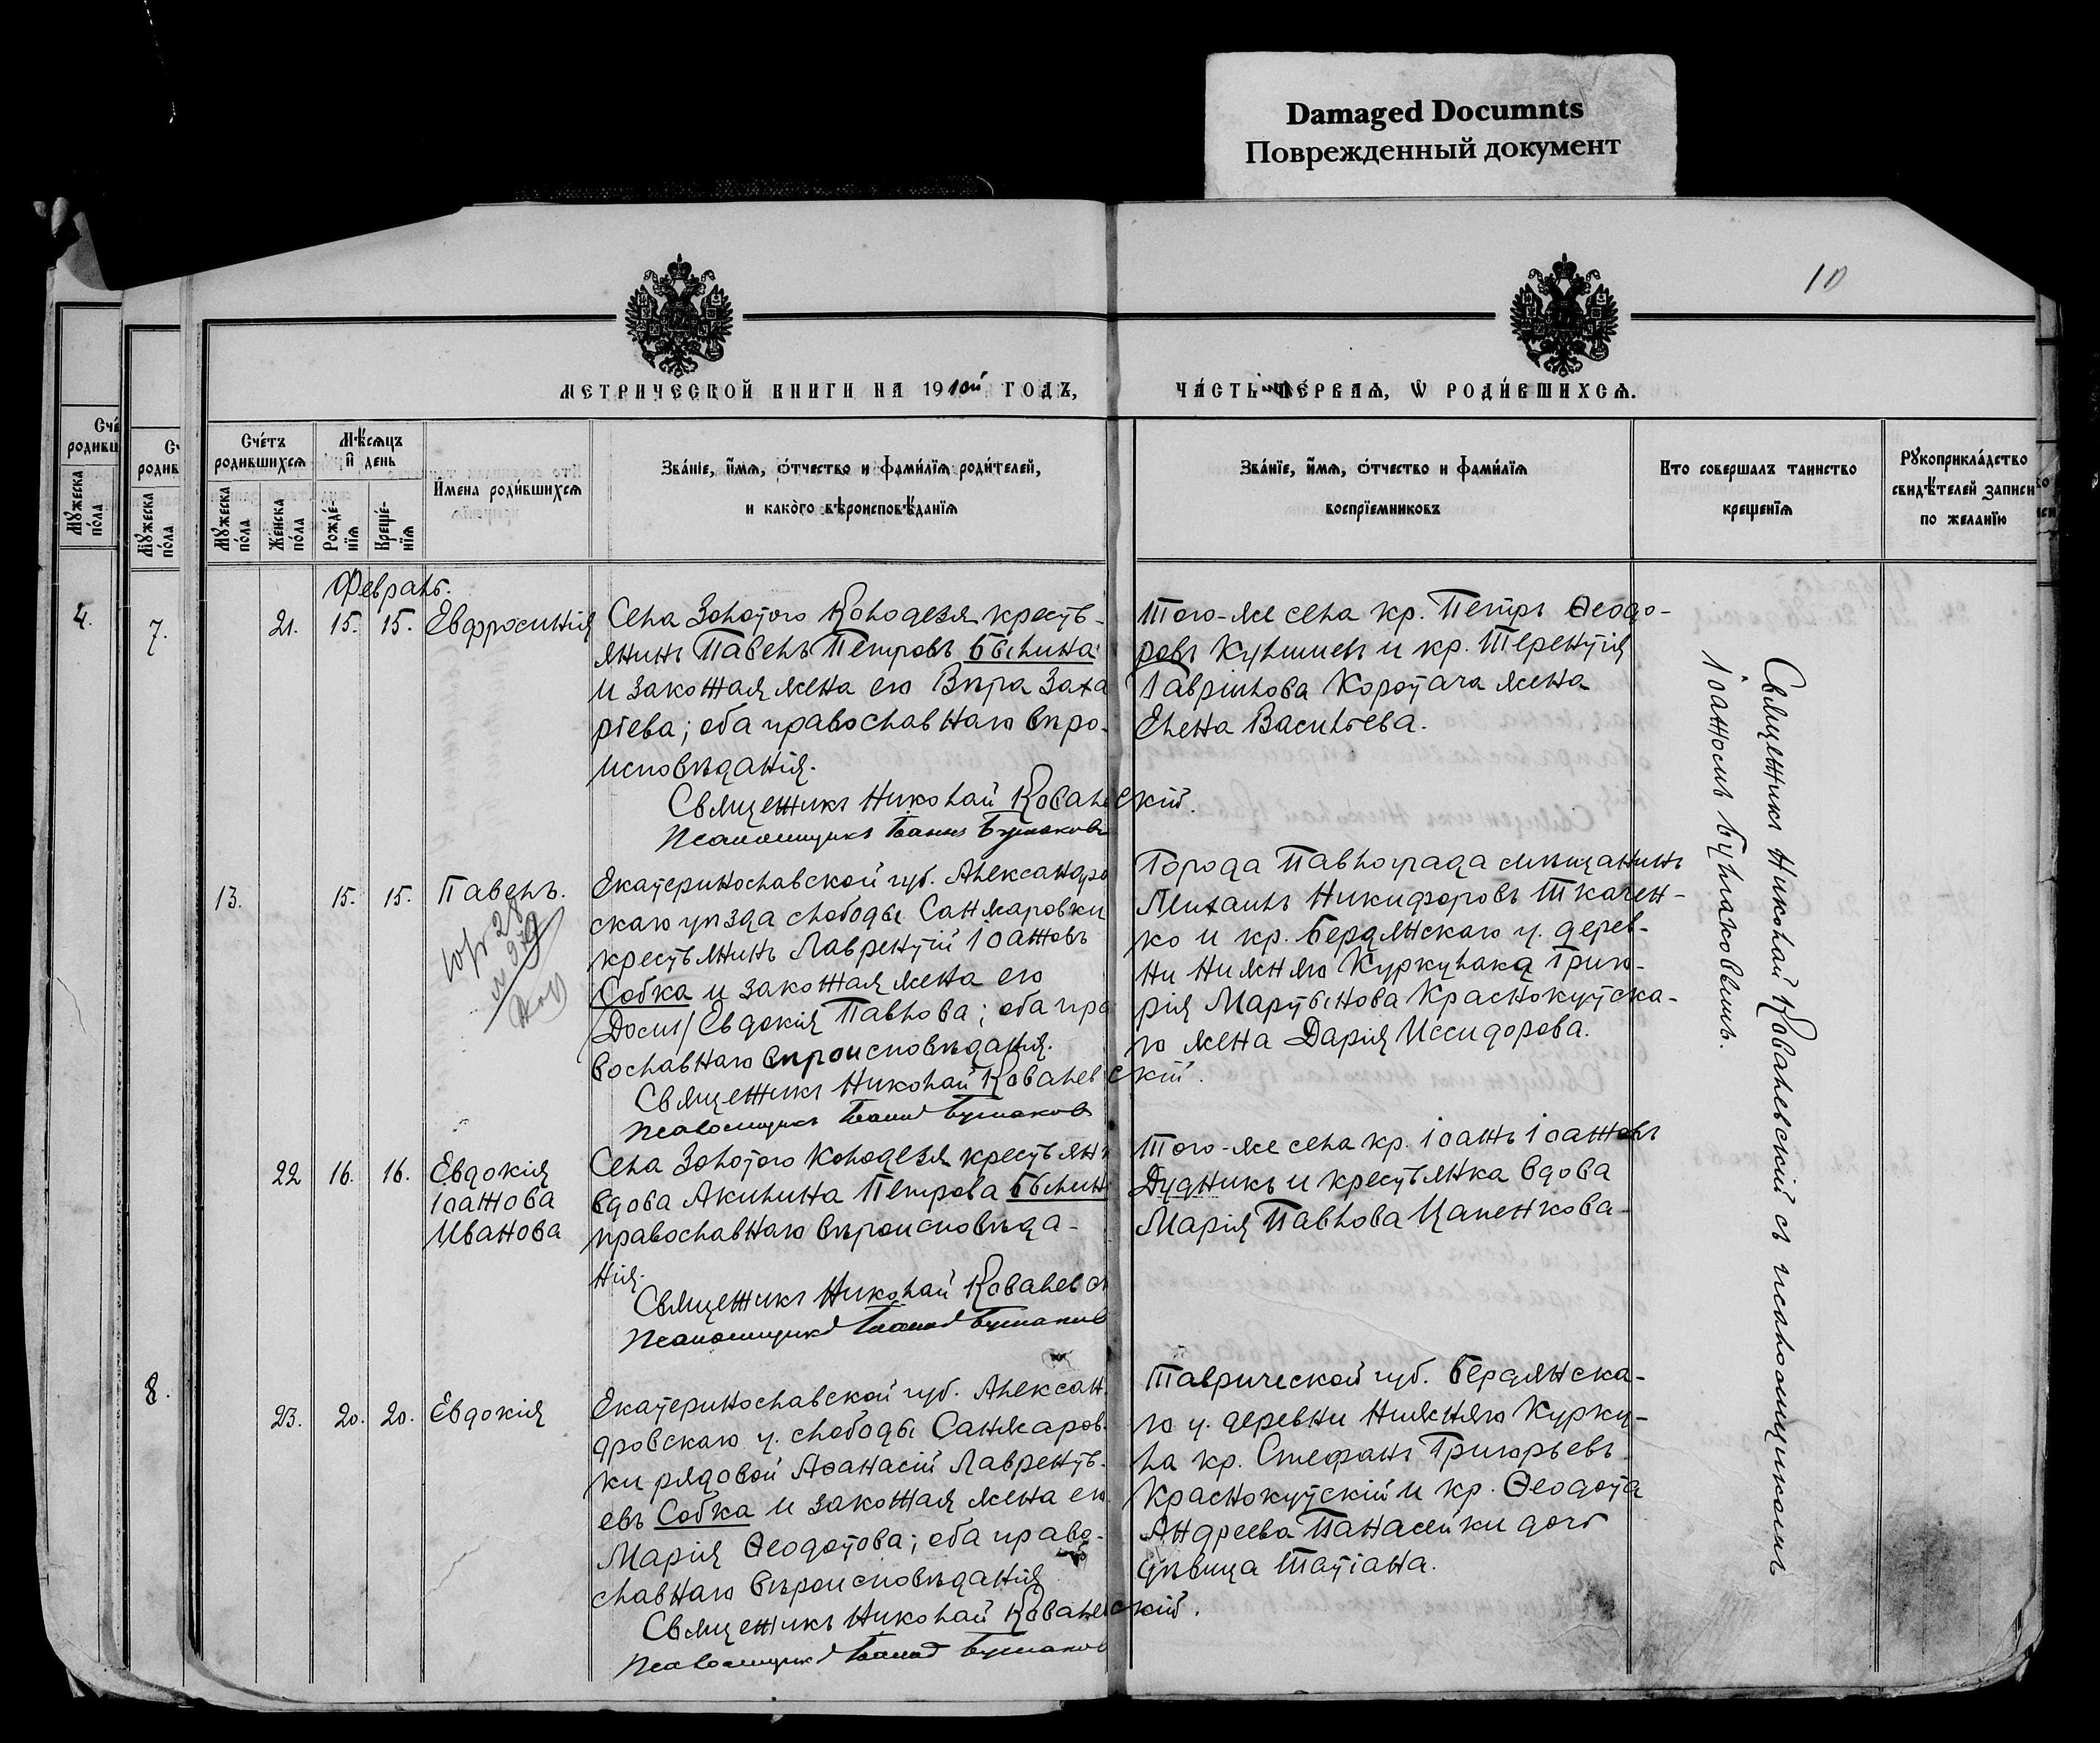 Damaged Documnts
Поврежденный документ
10
МЕТРИЧЕСКОЙ КНИГИ НА 1910й ГОДЪ,
ЧА́СТЬ ПЕ́РВАЯ, Ѡ҆ РОДИ́ВШИХСЯ.
Сче́тъ родившихся
Мꙋ́жеска по́ла
Же́нска по́ла
Мѣ́сяцъ и҆ день
Рожде́-нїя
Креще́-нїя
И҆мена роди́вшихся
Зва́нїе, и҆́мя, ѻ҆́тчество и фами́лїя роди́телей,
и како́го вѣроисповѣ́данїя
Зва́нїе, и҆́мя, ѻ҆́тчество и фами́лїя
воспрїемниковъ
Кто совершалъ таинство
крещенїя
Рꙋкоприкла́дство
свидѣ́телей записи
по желанїю
4.
7.
8.
Февраль.
21.
15.
15.
Евфросинія
Села Золотого Колодезя кресть-
янинъ Павелъ Петровъ Былина
и законная жена его Вѣра Заха
ріева; оба православнаго вѣро-
исповѣданія.
Священникъ Николай Ковалевскій.
Псаломщикъ Іоаннъ Бушаковъ
Того-же села кр. Петръ Ѳеодо-
ровъ Кульшиевъ и кр. Терентія
Гавріилова Коротача жена
Елена Васильева.
13.
15.
15.
Павелъ.
Екатеринославской губ. Александро
скаго уѣзда слободы Санжаровки
крестьянинъ Лаврентій Іоанновъ
Собка и законная жена его
Евдокія Павлова; оба пра
вославнаго вѣроисповѣданія.
Священникъ Николай Ковалевскій.
Псаломщикъ Іоаннъ Бушаковъ
Города Павлограда мѣщанинъ
Михаилъ Никифоровъ Ткачен-
ко и кр. Бердянскаго у. дерев-
ни Нижняго Куркулака Григо-
рія Мартынова Краснокутска-
го жена Дарія Иссидорова.
22
16.
16.
Евдокія
Іоаннова
Иванова
Села Золотого Колодезя крестьянк
вдова Акилина Петрова Былин
православнаго вѣроисповѣда-
нія.
Священникъ Николай Ковалевск
Псаломщикъ Іоаннъ Бушаков
Того-же села кр. Іоаннъ Іоанновъ
Дудникъ и крестьянка вдова
Марія Павлова Цапенкова
23.
20.
20.
Евдокія
Екатеринославской губ. Алексан
дровскаго у. слободы Санжаров-
ки рядовой Аѳанасій Лавренть-
евъ Собка и законная жена его
Марія Ѳеодотова; оба право-
славнаго вѣроисповѣданія
Священникъ Николай Ковалевскій.
Псаломщикъ Іоаннъ Бушаков
Таврической губ. Бердянска-
го у. деревни Нижняго Курку-
ла кр. Стефанъ Григорьевъ
Краснокутскій и кр. Ѳеодота
Андреева Панасейки дочь
дѣвица Татіана.
Священникъ Николай Ковалевскій съ псаломщикомъ
Іоанномъ Бушаковымъ.